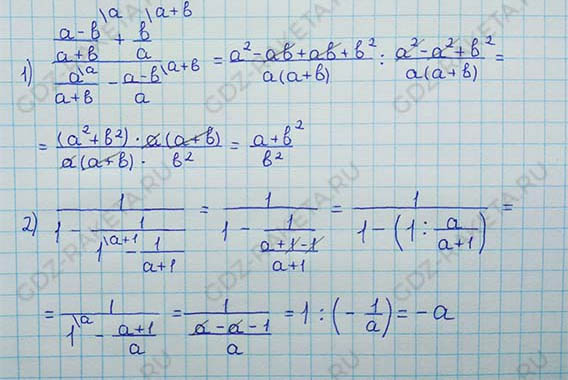 1) ((a-b)/(a+b) \a + b/a \a+b) / (a/(a+b) \a - (a-b)/a \a+b) = (a²-ab+ab+b²)/(a(a+b)) : (a²-a²+b²)/(a(a+b)) =
= ((a²+b²)·a(a+b))/(a(a+b)·b²) = (a+b²)/b²
2) 1/(1 - 1/(1 \a+1 - 1/(a+1))) = 1/(1 - 1/((a+1-1)/(a+1))) = 1/(1-(1:a/(a+1))) =
= 1/(1 \a - (a+1)/a) = 1/((a-a-1)/a) = 1:(-1/a) = -a
GDZ-RAKETA.RU